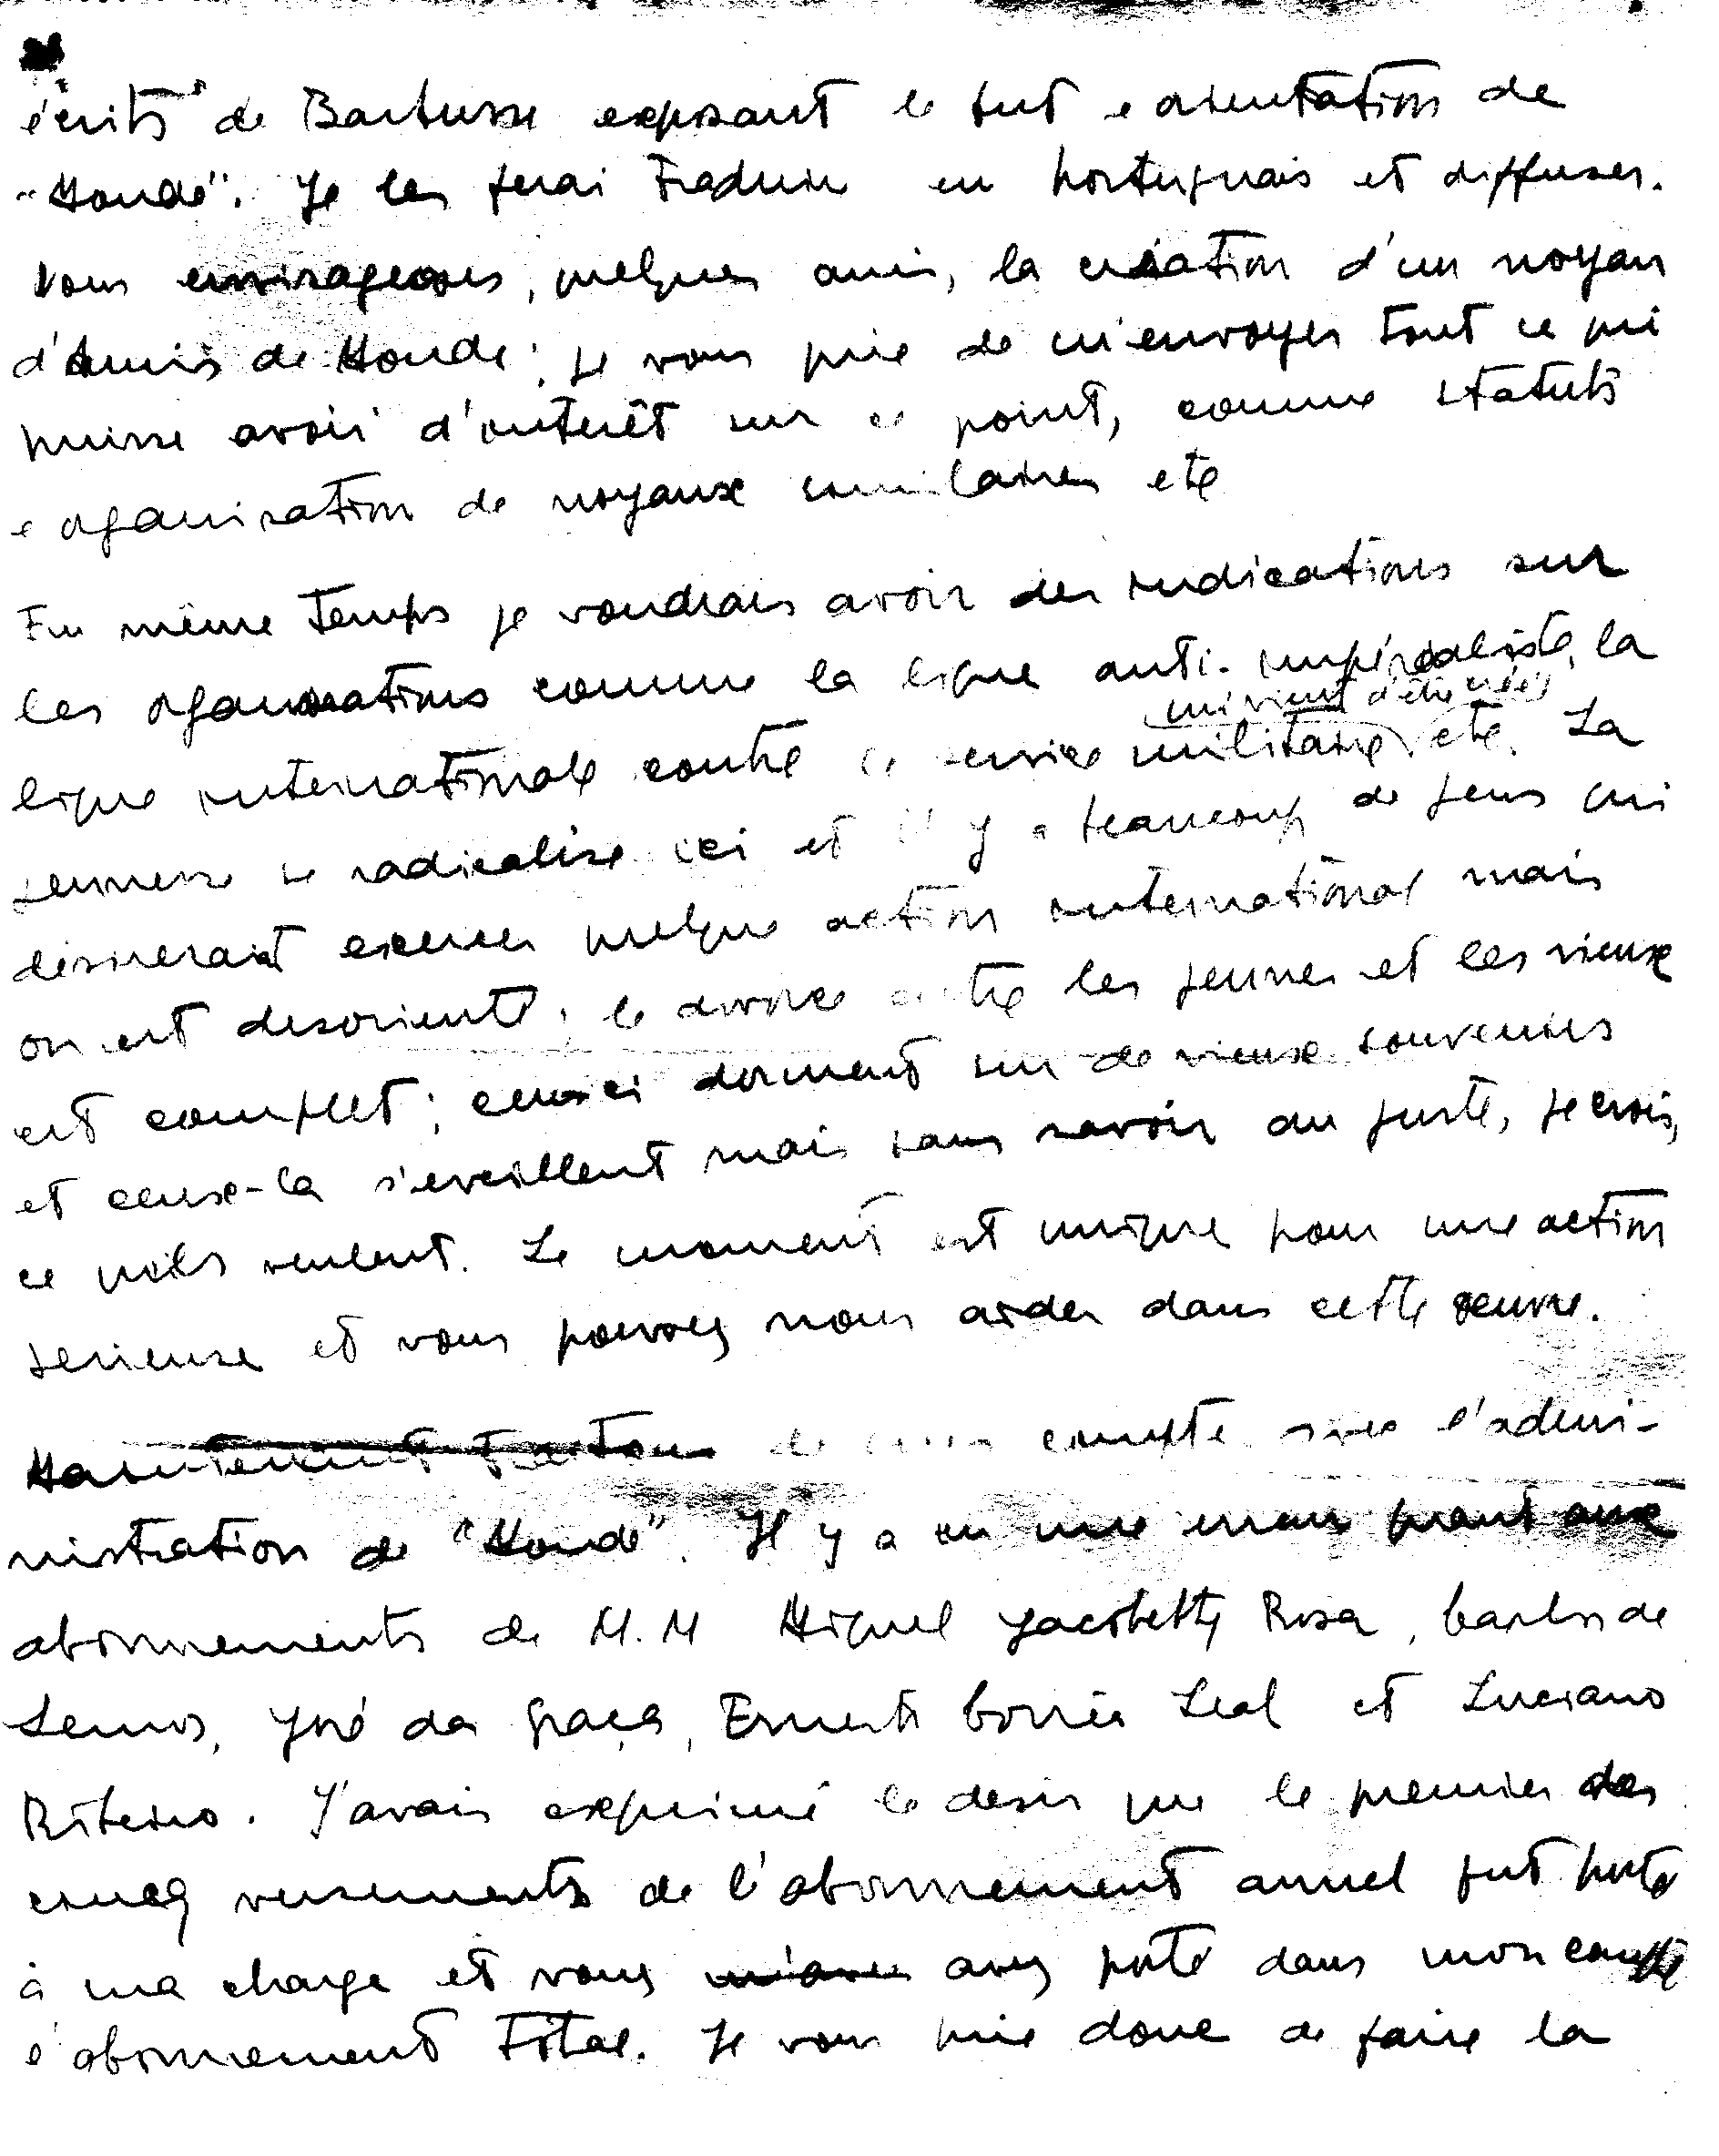 écrits de Barbusse exposant le but e orientation de
"Monde". Je les ferai traduire en portugais et diffuser.
Nous envisageons, quelques amis, la création d'un noyau
d'Amis de Monde; je vous prie de m'envoyer tout ce qui
puisse avoir d'intérêt sur ce point, comme statuts
e organisation de noyaux similaires etc
En même temps je voudrais avoir des indications sur
les organisations comme la ligue anti-impérialiste, la
qui vient d'être créée
ligue internationale contre le service militaire etc. La
jeunesse se radicalise ici et il y a beaucoup de gens qui
desireraient exercer quelque action international mais
on est desorienté; le divorce entre les jeunes et les vieux
est complet; ceux-ci dorment sur de vieux souvenirs
et ceux-là s'eveillent mais sans savoir au juste, je crois,
ce qu'ils veulent. Le moment est unique pour une action
serieuse et vous pouvez nous aider dans cette oeuvre.
Maintenant traitons de compte avec l'admi-
nistration de "Monde". Il y a eu une erreur quant aux
abonnements de M.M Miguel Jacobetty Rosa, Carlos de
Lemos, José da Graça, Ernesto Corrêa Leal et Luciano
Ribeiro. J'avais exprimé le desir que le premier des
cinq versements de l'abonnement annuel fut porté
à ma charge et vous m'avez avez porté dans mon compte
l'abonnement total. Je vous prie donc de faire la